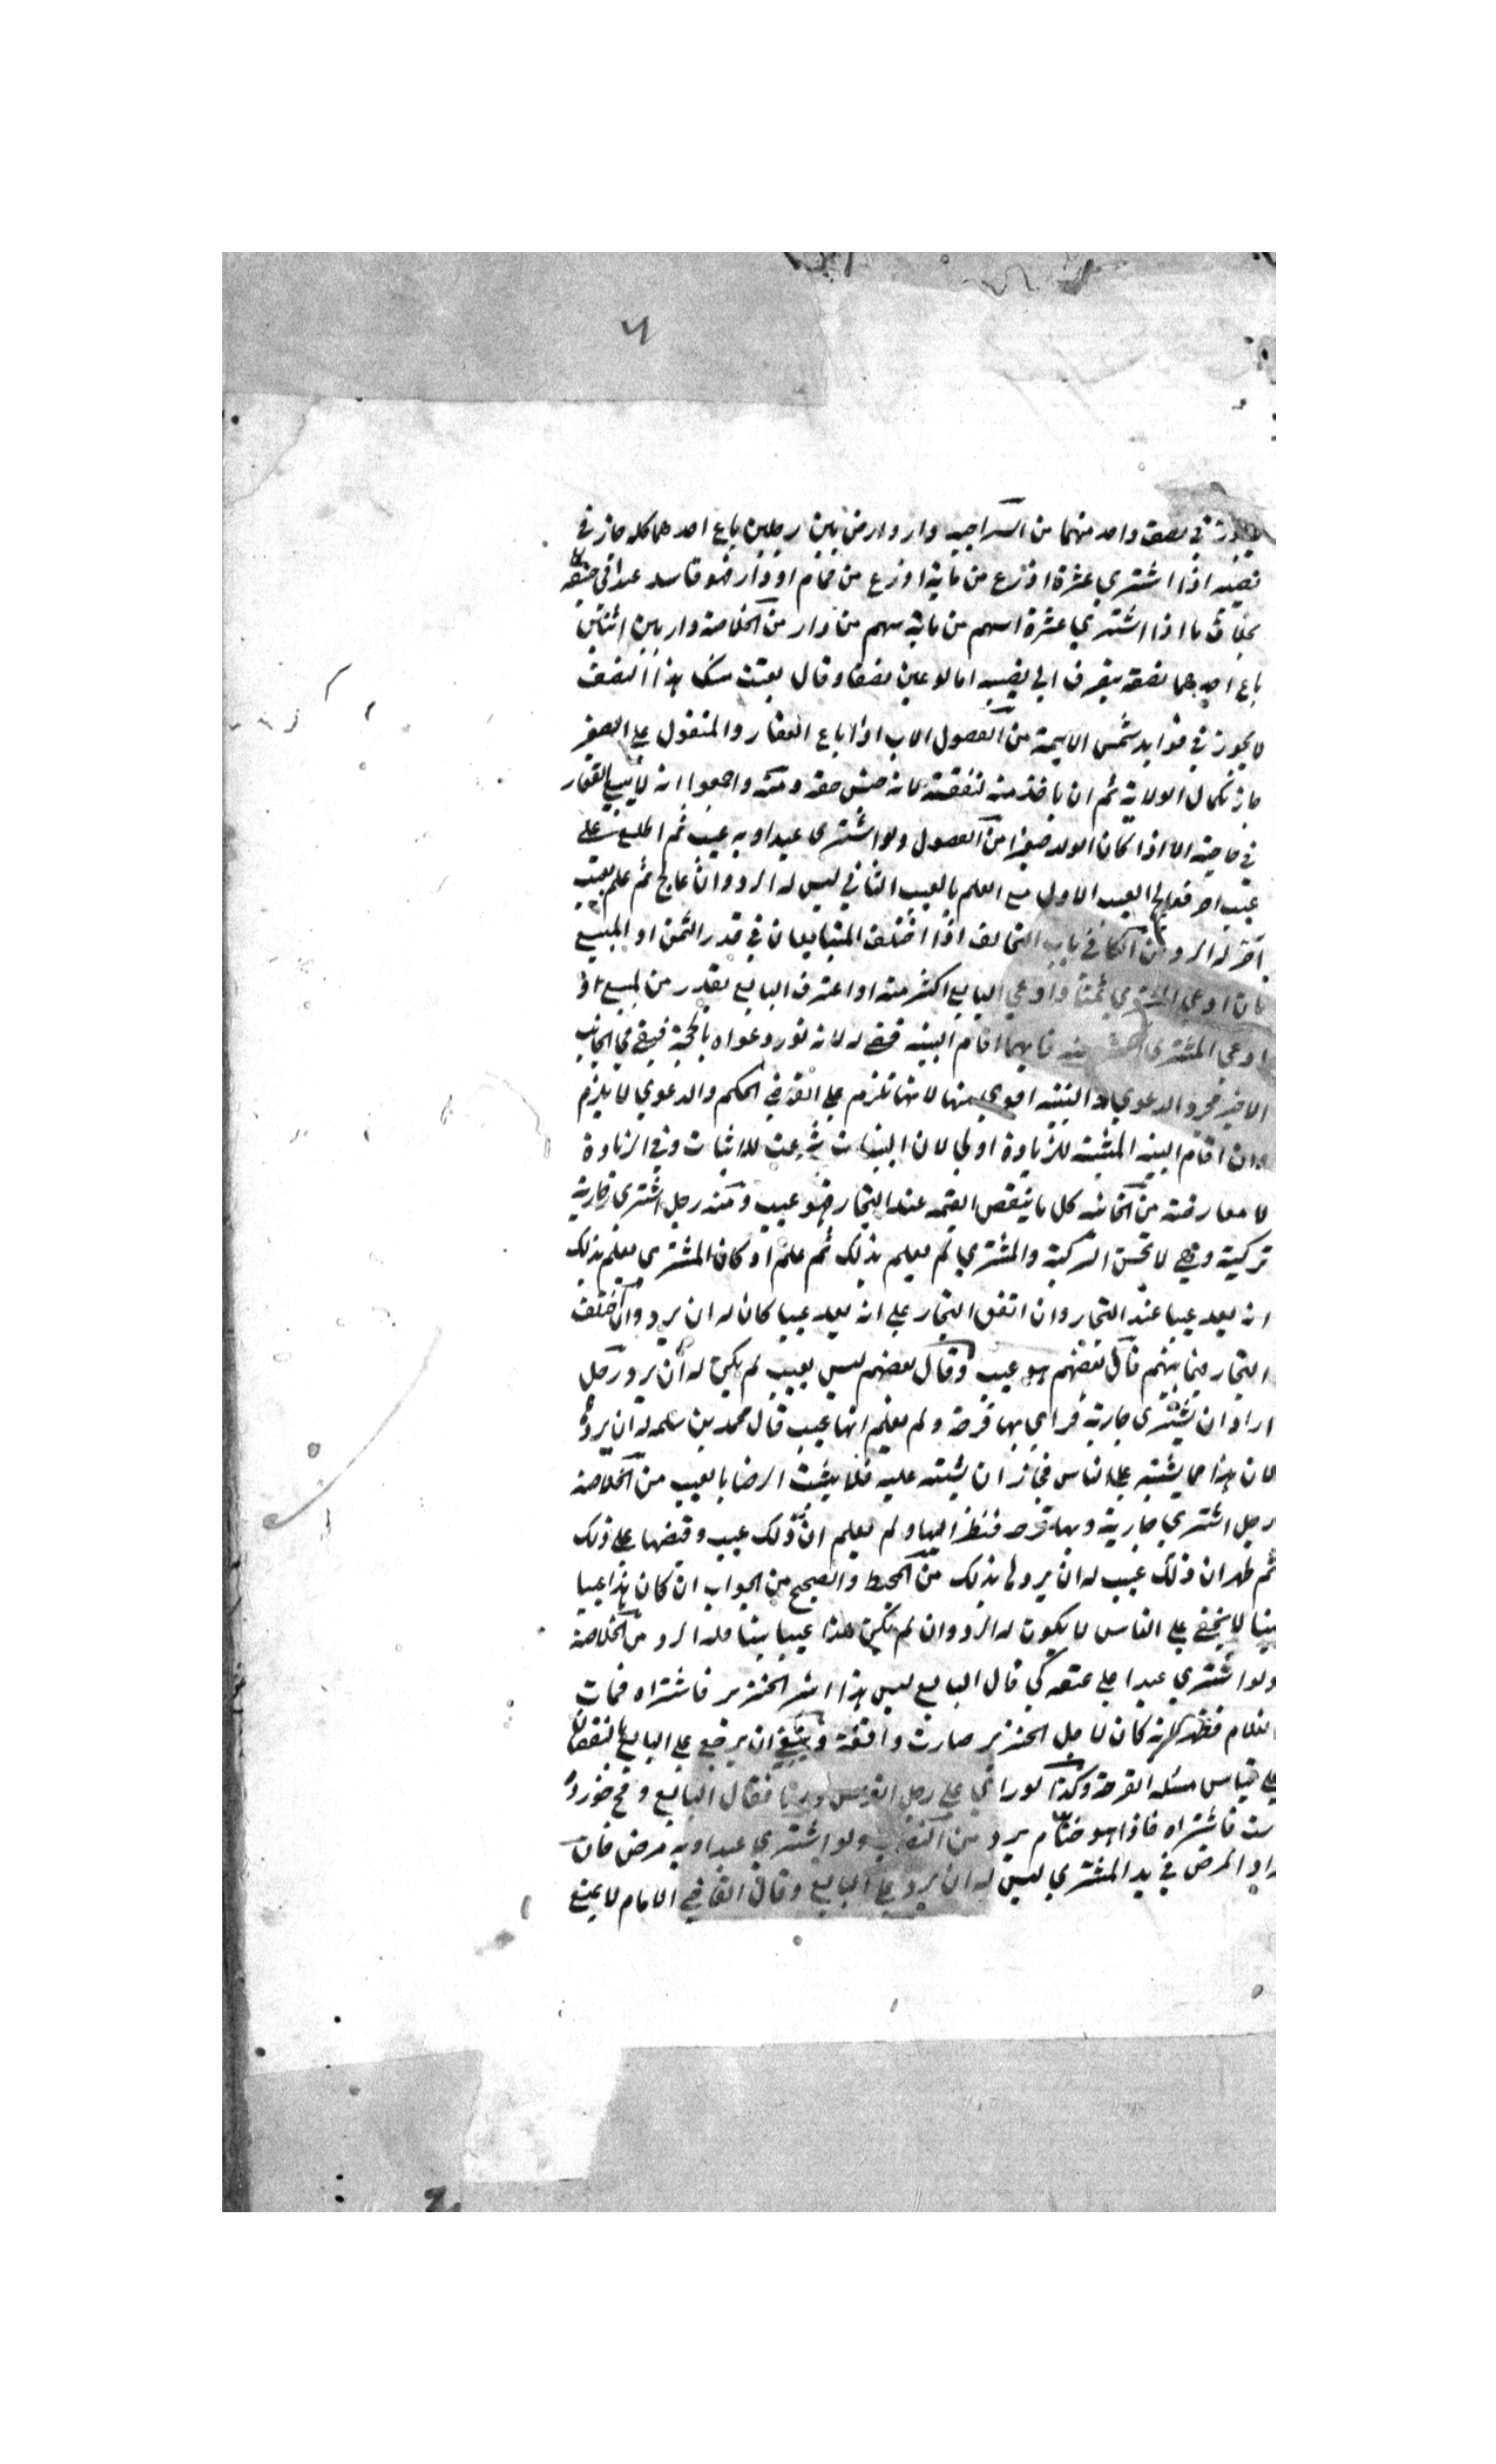 في نصف واحد منهما من السراجيه دار وارض بين رجلين باع احدهما كله جاز في
نصيبه اذا اشترى عشرة اذرع من ماية اذرع من حمام او دار فهو فاسد عند ابي حنيفة
بخلاف ما اذا اشترى عشرة اسهم من ماية سهم من دار من الخلاصة دار بين اثنين
باع احدهما نصفه ينصرف الى نصيبه اما لو عين نصفا وقال بعت منك هذا النصف
لا يجوز في فوايد شمس الايمة من الفصول الاب اذا باع العقار والمنقول على الصغير
جاز لكمال الولاية ثم ان ياخذ منه لنفقته لانه جنس حقه ومنه واجمعوا انه لا يبيع العقار
في حاجته الا اذا كان الولد صغيرا من الفصول ولو اشترى عبدا وبه عيب ثم اطلع على
عيب اخر فعالج العيب الاول مع العلم بالعيب الثاني ليس له الرد وان عالج ثم علم بعيب
آخر له الرد من الكافي باب التحالف اذا اختلف المتبايعان في قدر الثمن او المبيع
بان ادعى المشتري ثمنا وادعى البايع اكثر منه او اعترف البايع بقدر من المبيع او
ادعى المشتري اكثر منه فايهما اقام البينه قضي له لانه نور دعواه بالحجة فبقي في الجانب
الاخر مجرد الدعوى والبينه اقوى منها لانها تلزم على القاضي الحكم والدعوى لا يلزم
وان اقام البينه المثبتة للزيادة اولى لان البينات شرعت للاثبات وفي الزيادة
لا معارضة من الخانيه كل ما ينقص القيمه عند التجار فهو عيب ومنه رجل اشترى جارية
تركية وهي لا تحسن التركية والمشتري لم يعلم بذلك ثم علم او كان المشتري يعلم بذلك
انه يعد عيبا عند التجار وان اتفق التجار على انه يعد عيبا كان له ان يرد وان اختلف
التجار فيما بينهم قال بعضهم هو عيب وقال بعضهم ليس بعيب لم يكن له ان يرد رجل
اراد ان يشتري جارية فراى بها قرحة ولم يعلم انها عيب قال محمد بن سلمه له ان يرد
لان هذا مما يشتبه على الناس فجاز ان يشتبه عليه فلا يثبت الرضا بالعيب من الخلاصة
رجل اشترى جارية وبها قرحه فنظر اليها ولم يعلم ان ذلك عيب وقبضها على ذلك
ثم ظهر ان ذلك عيب له ان يردها بذلك من المحيط والصحيح من الجواب ان كان هذا عيبا
بينا لا يخفى على الناس لا يكون له الرد وان لم يكن هذا عيبا بينا فله الرد من الخلاصة
ولو اشترى عبدا على عنقه كي قال البايع ليس هذا اثر الخنزير فاشتراه فمات
الغلام فظهر انه كان لاجل الخنزير صارت واقعة وينبغي ان يرجع على البايع بالنقصان
على قياس مسئله القرحة وكذا لو راى على رجل الفرس ورما فقال البايع زخم خورده
است فاشتراه فاذا هو ختام يرد من ولو اشترى عبدا وبه مرض فان
زاد المرض في يد المشتري ليس له ان يرد على البايع وقال القاضي الامام لا يمنع